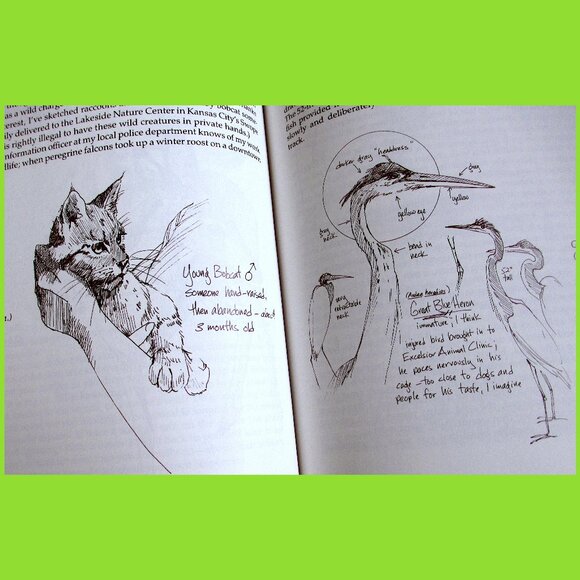 as a wild charge
by bobcat some-
erest. I've sketched raccoons
ily delivered to the Lakeside Nature Center in Kansas City's Swope
is rightly illegal to have these wild creatures in private hands.)
information officer at my local police department knows of my work
dlife; when peregrine falcons took up a winter roost on a downtown
Young Bobcat ♂
someone hand-raised,
then abandoned – about
3 months old
The 52-in
fish provided
slowly and deliberately
track.
darker gray "headdress"
gray
yellow
yellow eye
gray neck
bend in
neck
very
retractable
neck
52"
tall
Great Blue Heron
immature, I think
injured bird brought in to
Excelsior Animal Clinic;
he paces nervously in his
cage – too close to dogs and
people for his taste, I imagine